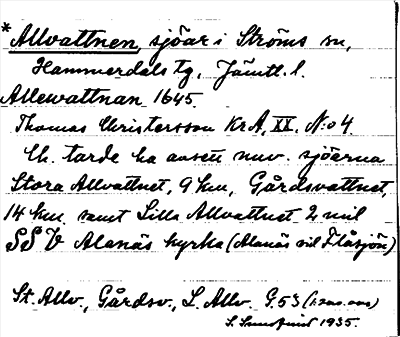 *Allvattnen, sjöar i Ströms sn,
Hammerdals tg, Jämtl. l.
Allewattnan 1645.
Thomas Christersson KrA, XX, N:o 4.
Ch. torde ha avsett nuv. sjöarna
Stora Allvattnet, 9 km, Gårdsvattnet,
14 km samt Lilla Allvattnet 2 mil
SSV Alanäs kyrka (Alanäs vid Flåsjön)
St. Allv., Gårdsv., L. Allv. G. 53
1935.